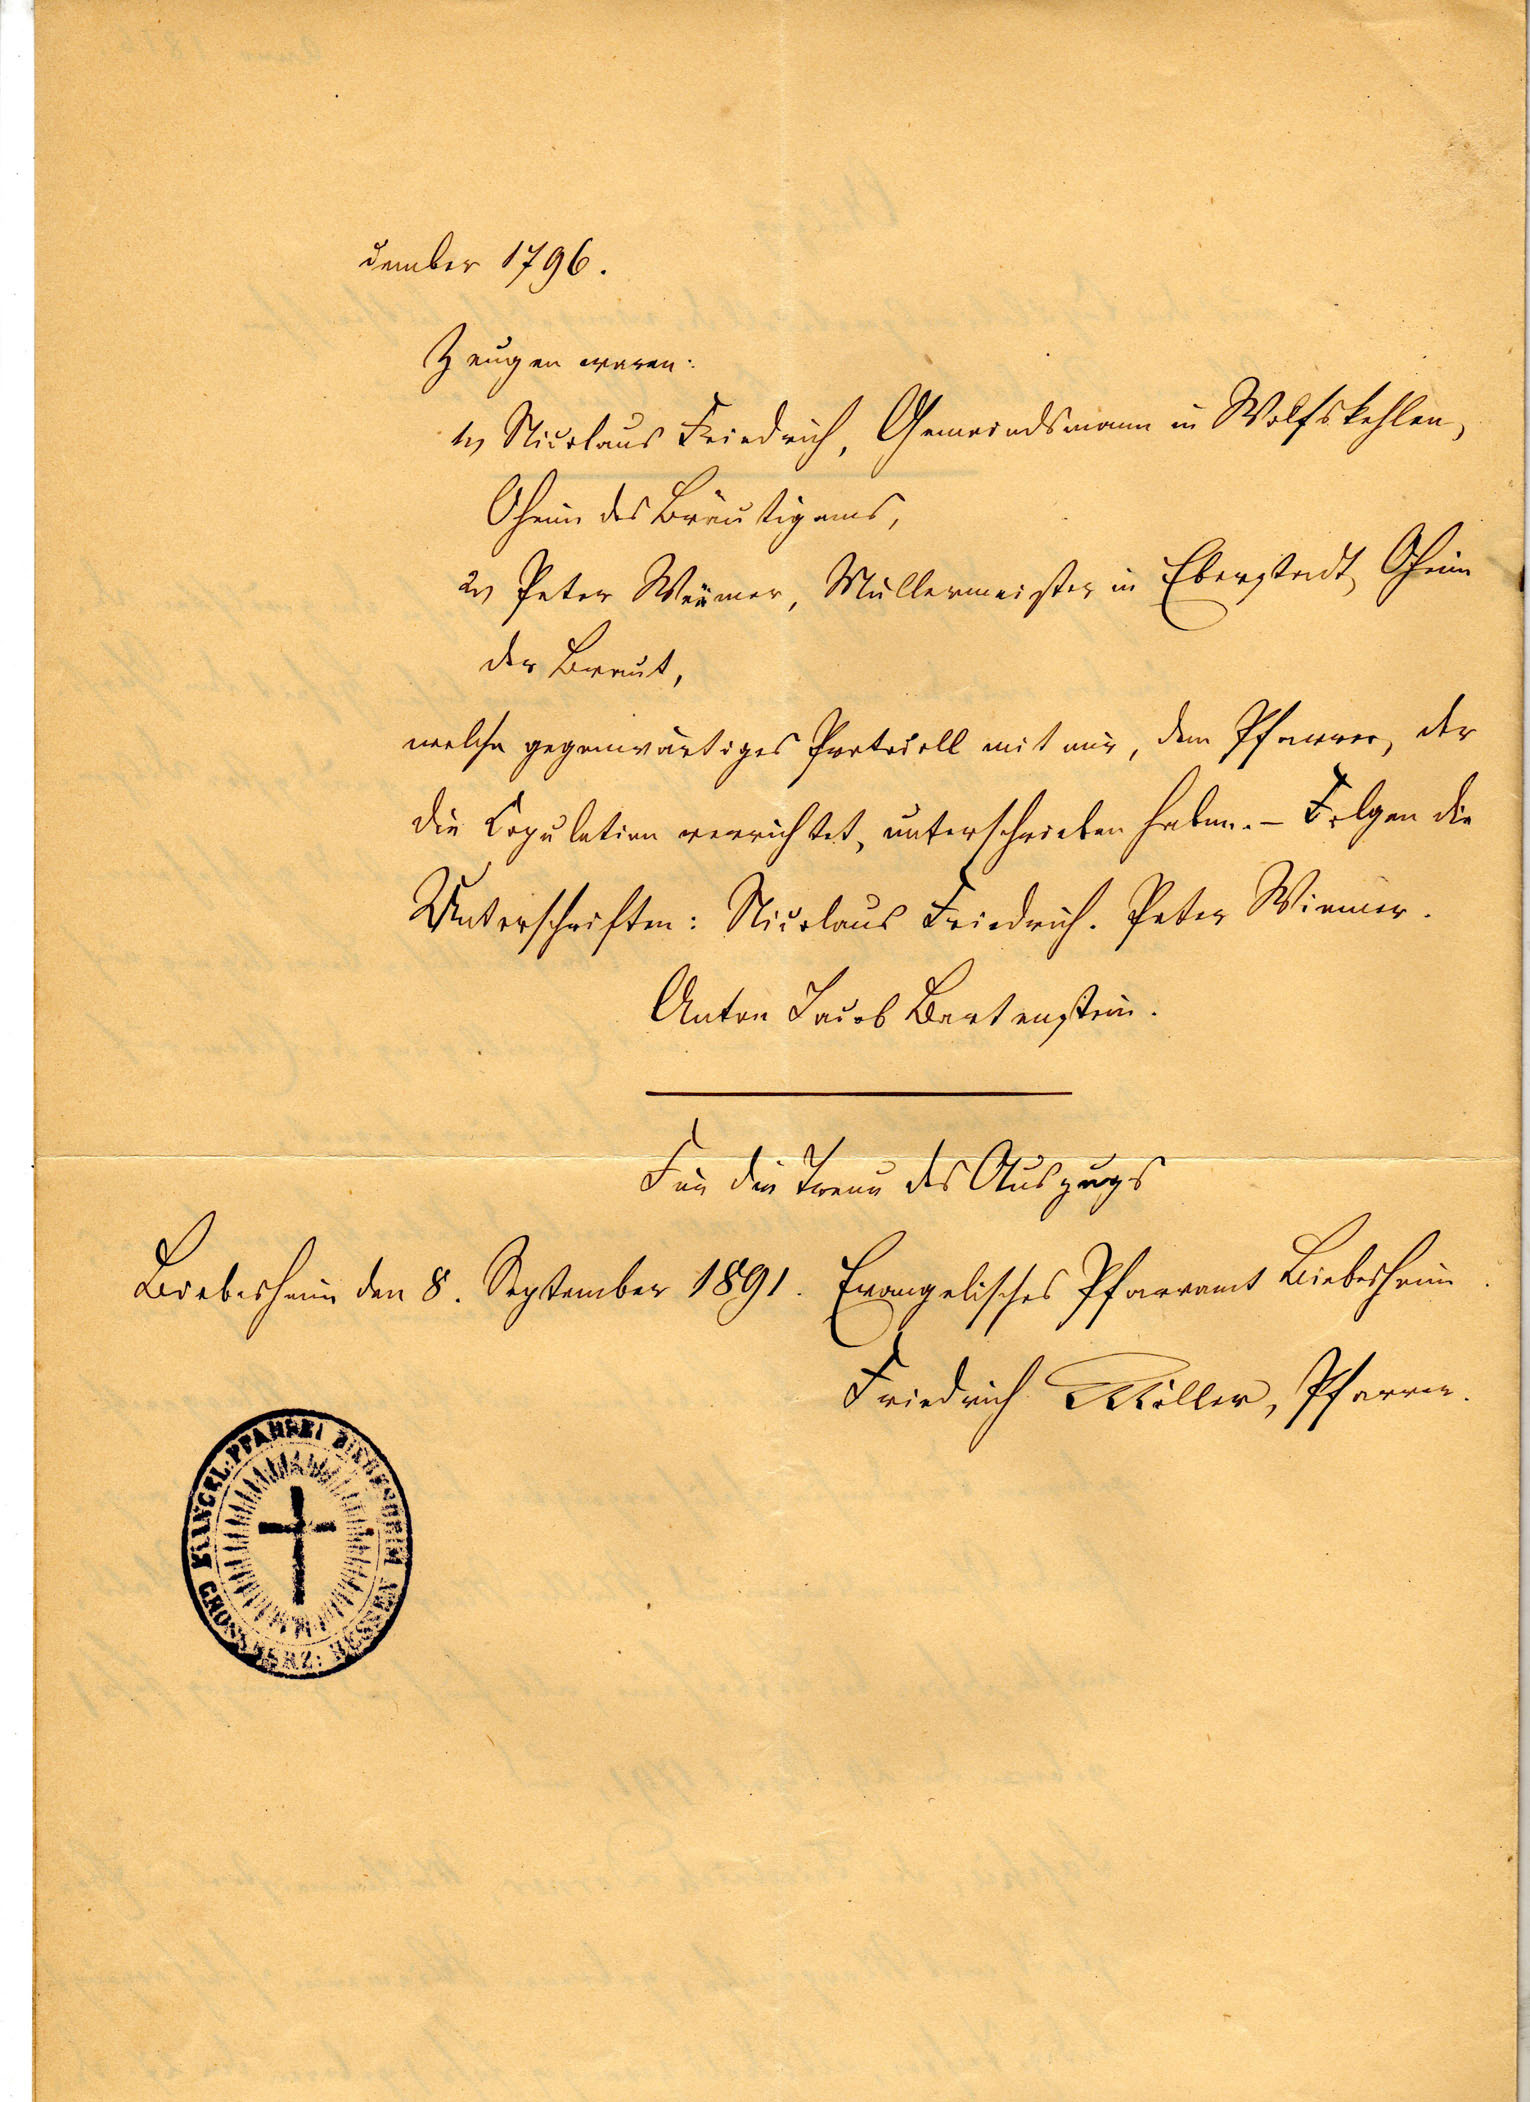 cember 1796.
Zeugen waren:
1, Nicolaus Friedrich, Gemeindsmann in Wolfskehlen,
Oheim des Bräutigams,
2, Peter Wiemer, Müllermeister in Eberstadt, Oheim
der Braut,
welche gegenwärtiges Protocoll mit mir, dem Pfarrer, der
die Copulation verrichtet, unterschrieben haben. – Folgen die
Unterschriften: Nicolaus Friedrich. Peter Wiemer.
Anton Jacob Bertenstein.
Für die Treue des Auszugs
Biebesheim den 8. September 1891. Evangelisches Pfarramt Biebesheim.
Friedrich Müller, Pfarrer.
EVANGEL: PFARREI BIEBESHEIM
GROSSHERZ: HESSEN